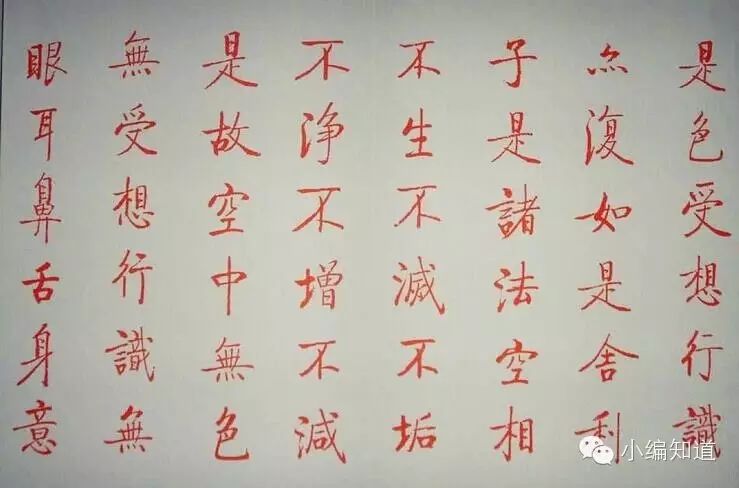 是色受想行識
亦復如是舍利
子是諸法空相
不生不滅不垢
不淨不增不減
是故空中無色
無受想行識無
眼耳鼻舌身意
小编知道